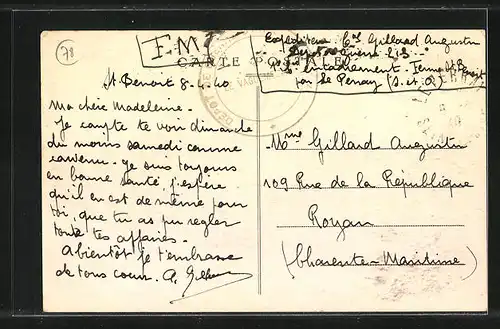 78
F.M
CARTE POSTALE
Expéditeur Cal Gillard Augustin
Dépôt de Guerre
Cantonnement Ferme St B
par le Perray (S. et O.)
St. Benoit 8-4-40
Ma chère Madeleine.
Je compte te voir dimanche
du moins samedi comme
convenu. Je suis toujours
en bonne santé, j'espère
qu'il en est de même pour
toi, que tu as pu regler
toute tes affaires.
A bientôt je t'embrasse
de tous cœur. A. Gillard
Mme Gillard Augustin
109 Rue de la République
Royan
(Charente-Maritime)